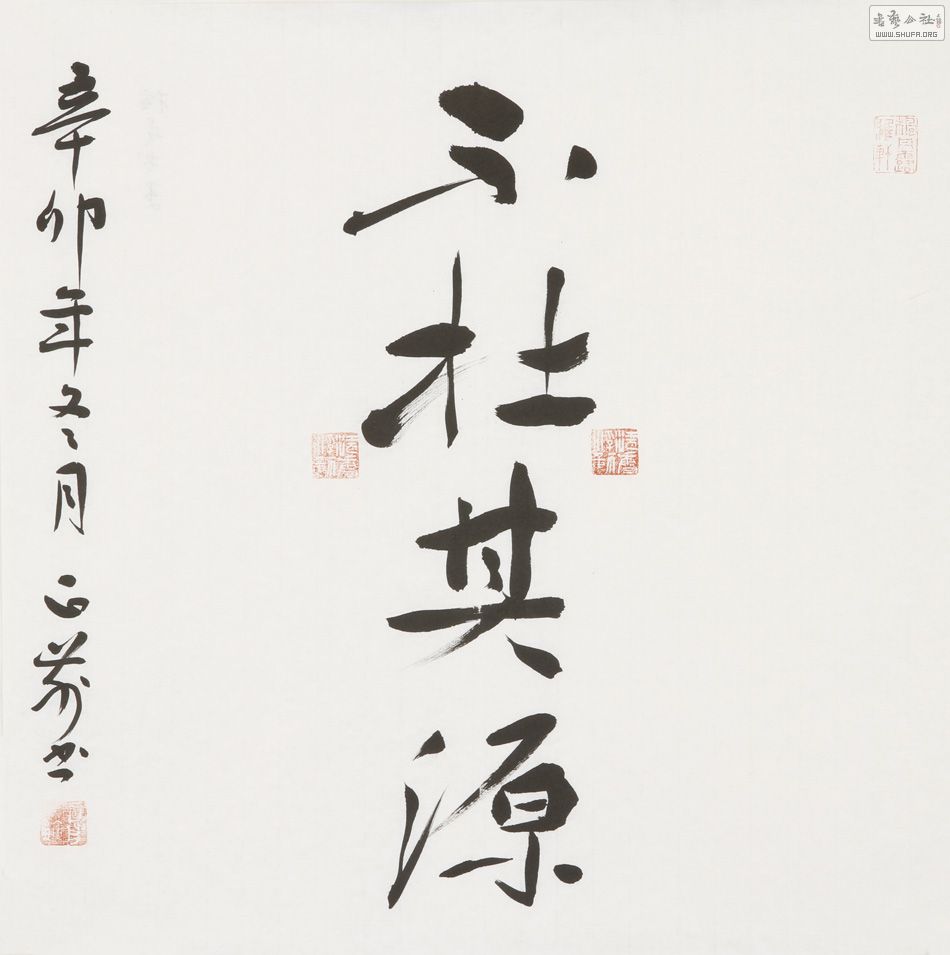 不杜其源
辛卯年冬月 正前书
书艺公社
WWW.SHUFA.ORG